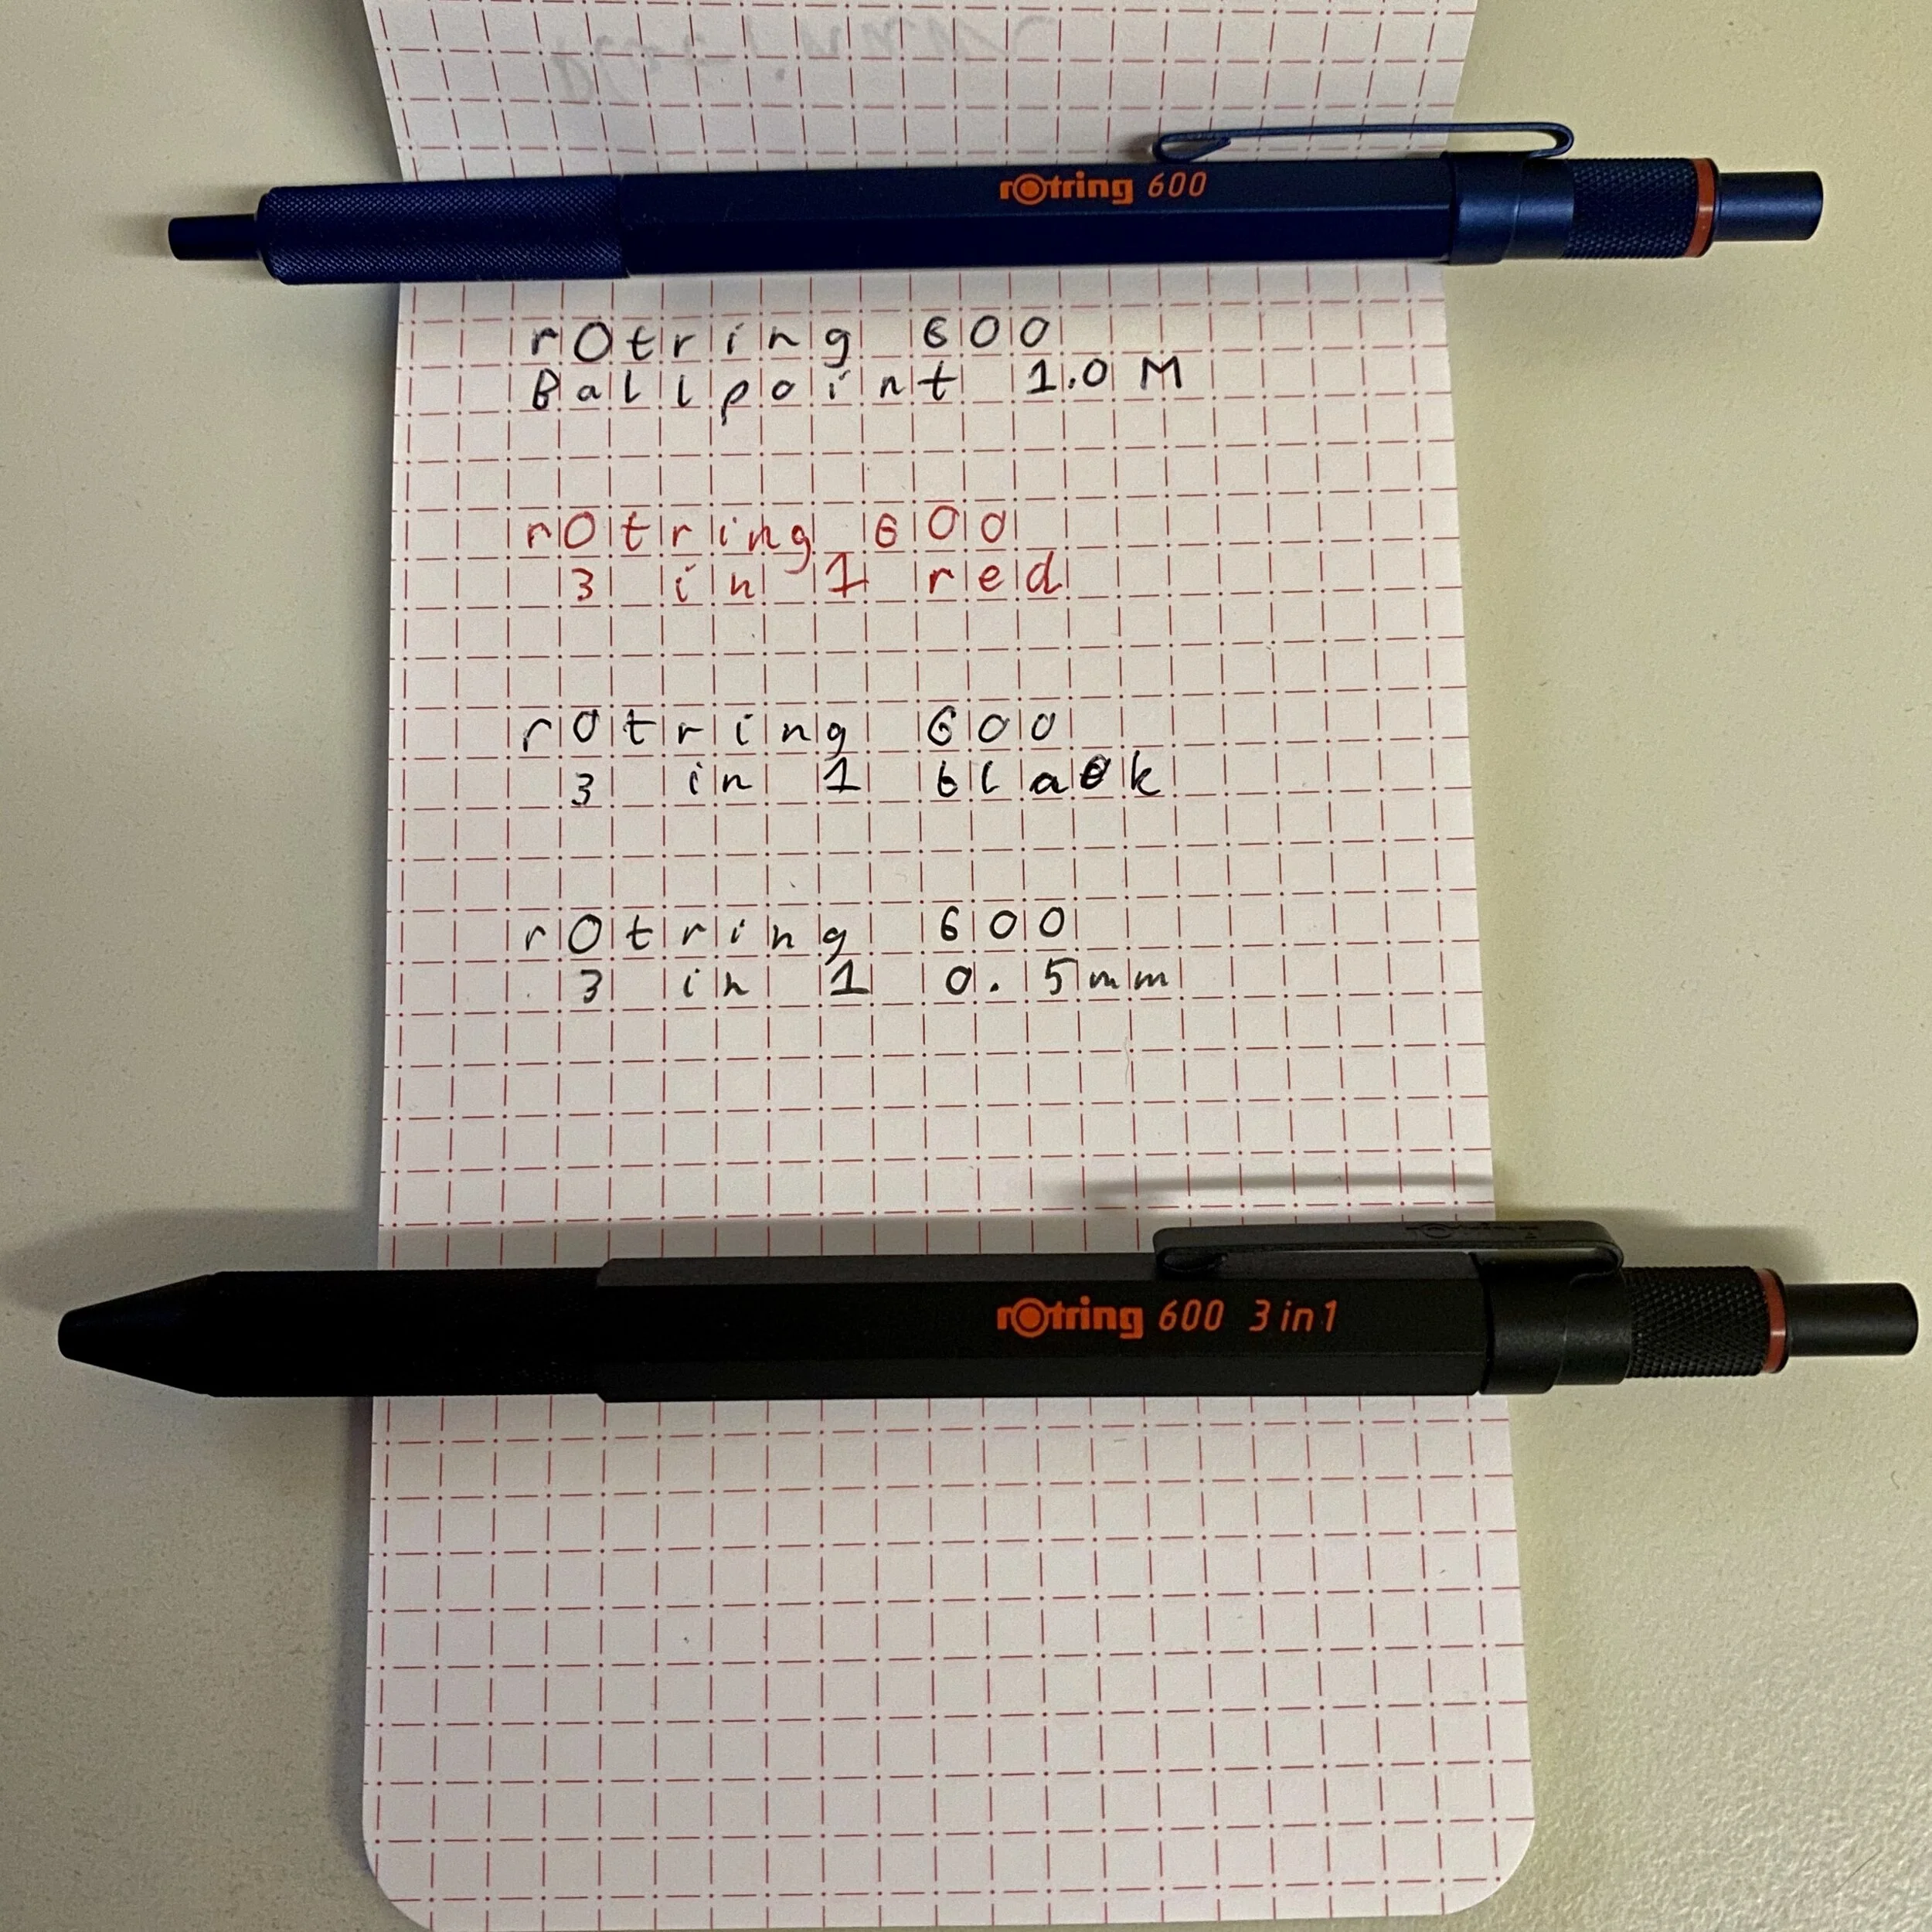 rOtring 600
rOtring 600
Ballpoint 1.0 M
rOtring 600
3 in 1 red
rOtring 600
3 in 1 black
rOtring 600
3 in 1 0.5mm
rOtring
rOtring 600 3in1